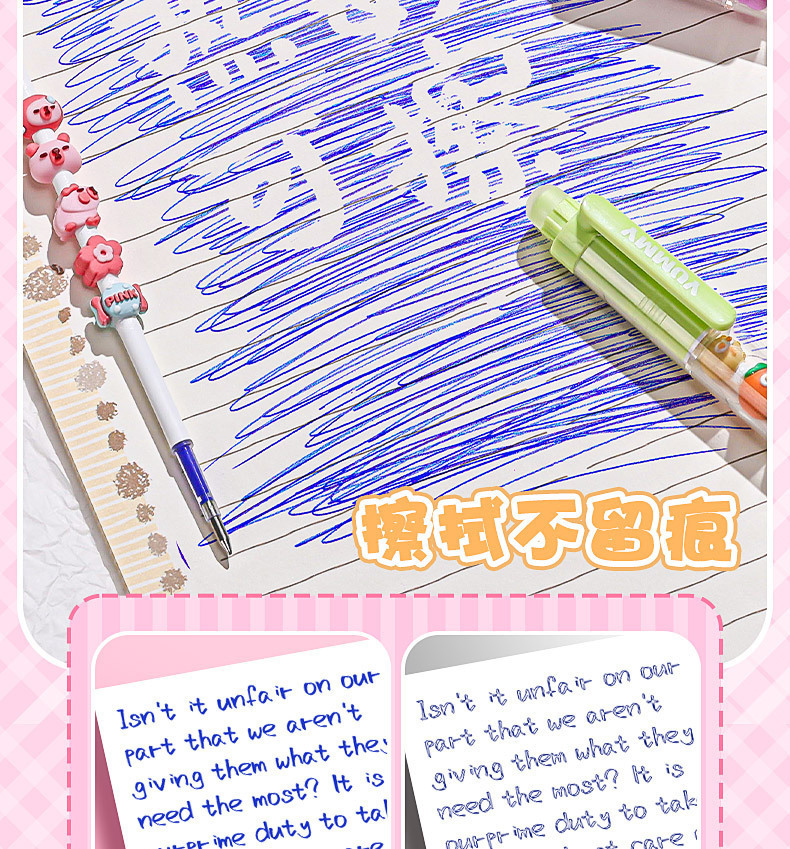 可擦
YUMMY
PINK
擦拭不留痕
Isn't it unfair on our
part that we aren't
giving them what they
need the most? It is
ourprime duty to tak
Isn't it unfair on our
part that we aren't
giving them what they
need the most? It is
ourprime duty to tak